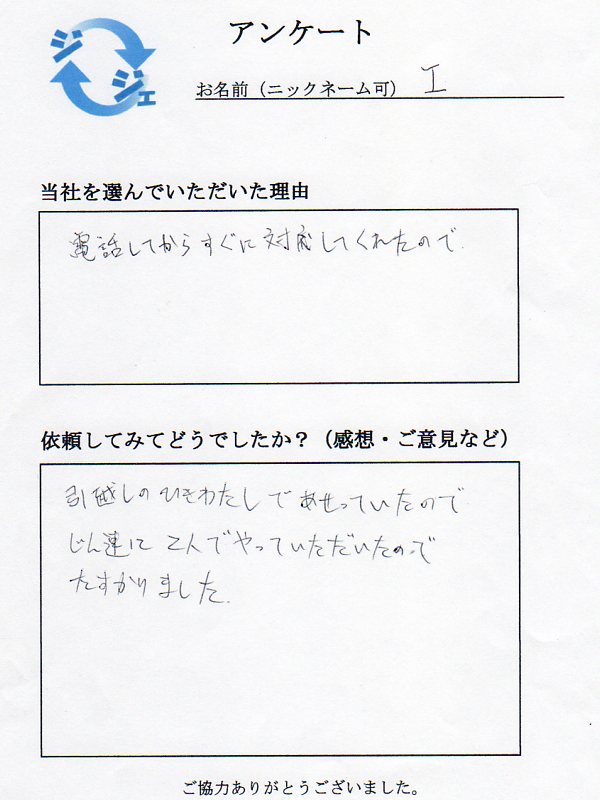 ジ
ジェ
アンケート
お名前（ニックネーム可） エ
当社を選んでいただいた理由
電話してからすぐに対応してくれたので.
依頼してみてどうでしたか？（感想・ご意見など）
引越しのひきわたしであせっていたので
じん速に2人でやっていただいたので
たすかりました.
ご協力ありがとうございました。